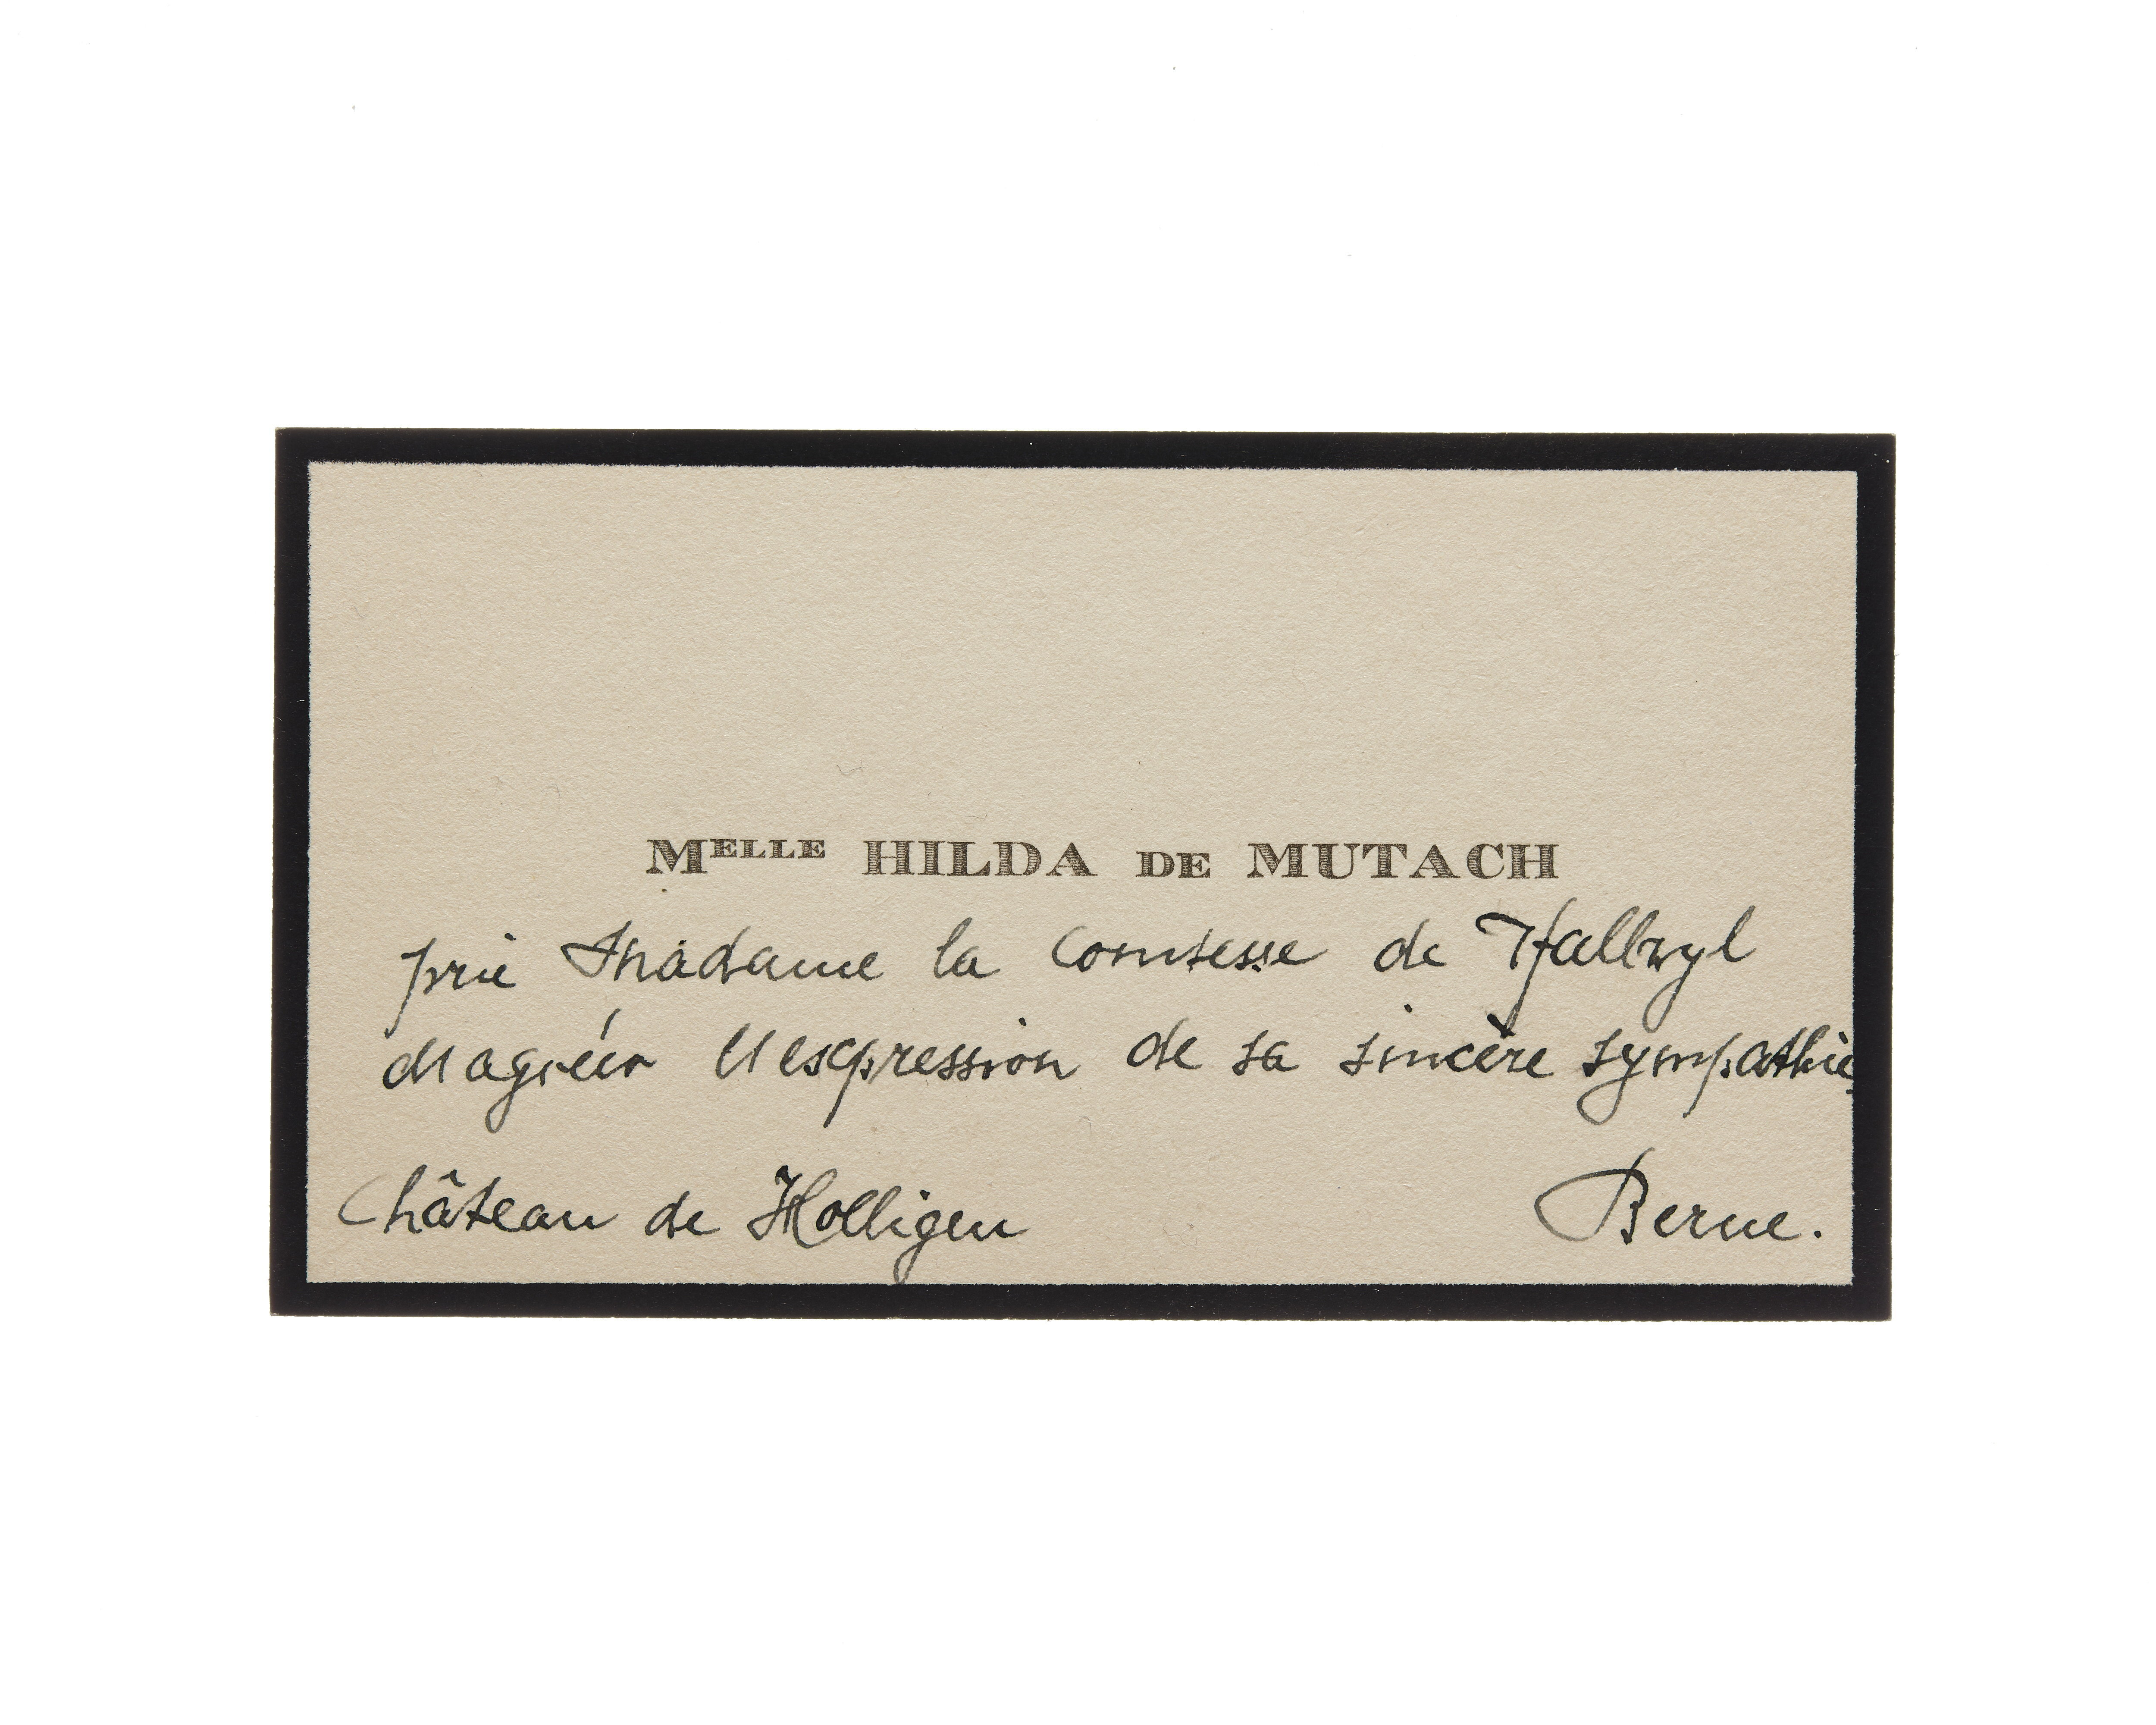 MELLE HILDA DE MUTACH
prie Madame la Comtesse de Hallwyl
d'agréér l'expression de sa sincère sympathie.
Château de Holligen Berne.